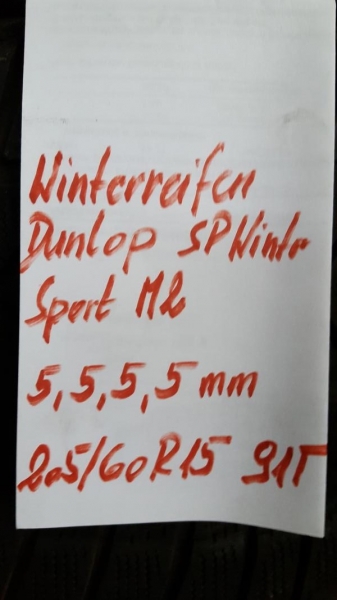 Winterreifen
Dunlop SP Winter
Sport M2
5,5,5,5 mm
205/60R15 91T